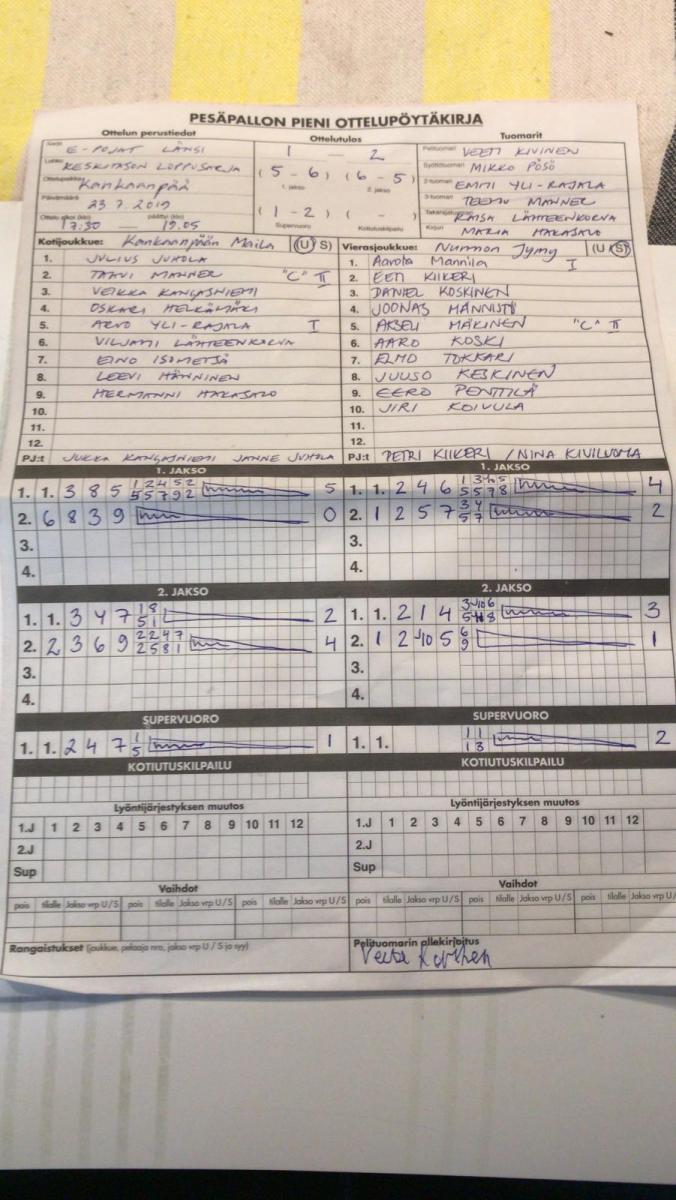 PESÄPALLON PIENI OTTELUPÖYTÄKIRJA
Ottelun perustiedot Ottelutulos Tuomarit
Sarja E-POJAT LÄNSI 1 — 2 Pelituomari VEETI KIVINEN
Lohko KESKITASON LOPPUSARJA (5 - 6) (6 - 5) Syöttötuomari MIKKO PÖSÖ
Ottelupaikka Kankaanpää 1. jakso 2. jakso 2-tuomari EMMI YLI-RAJALA
Päivämäärä 23.7.2019 (1 - 2) ( - ) 3-tuomari TEEMU MANNER
Ottelu alkoi (klo) 17:30 — päättyi (klo) 19.05 Supervuoro Kotiutuskilpailu Takarajatuomari KAISA LÄHTEENKORVA
Kirjuri MARIA HAKASALO
Kotijoukkue: Kankaanpään Maila (U S) Vierasjoukkue: Nurmon Jymy (U S)
1. JULIUS JUHOLA 1. Aarotta Mannila I
2. TAAVI MANNER "C" II 2. EETI KIIKERI
3. VEIKKA KANGASNIEMI 3. DANIEL KOSKINEN
4. OSKARI HELKÄMÄKI 4. JOONAS MÄNNISTÖ
5. ARVO YLI-RAJALA I 5. AKSELI MÄKINEN "C" II
6. VILJAMI LÄHTEENKORVA 6. AARO KOSKI
7. EINO ISOMETSÄ 7. ELMO TOKKARI
8. LEEVI HÄNNINEN 8. JUUSO KESKINEN
9. HERMANNI HAKASALO 9. EERO PENTTILÄ
10. 10. JIRI KOIVULA
11. 11.
12. 12.
PJ:t JUKKA KANGASNIEMI JANNE JUHOLA PJ:t PETRI KIIKERI / NINA KIVILUOMA
1. JAKSO 1. JAKSO
1. 1. 3 8 5 1 2 4 5 2 5 1. 1. 2 4 6 1 3 4 5 4
5 5 7 9 2 5 5 7 8
2. 6 8 3 9 0 2. 1 2 5 7 3 4 2
5 7
3. 3.
4. 4.
2. JAKSO 2. JAKSO
1. 1. 3 4 7 1 8 2 1. 1. 2 1 4 3 J10 6 3
5 1
2. 2 3 6 9 2 2 4 7 4 2. 1 2 J10 5 6 1
2 5 8 1 9
3. 3.
4. 4.
SUPERVUORO SUPERVUORO
1. 1. 2 4 7 1 1 1. 1. 1 1 2
5 1 3
KOTIUTUSKILPAILU KOTIUTUSKILPAILU
Lyöntijärjestyksen muutos Lyöntijärjestyksen muutos
1.J 1 2 3 4 5 6 7 8 9 10 11 12 1.J 1 2 3 4 5 6 7 8 9 10 11 12
2.J 2.J
Sup Sup
Vaihdot Vaihdot
pois tilalle Jakso vrp U / S pois tilalle Jakso vrp U / S pois tilalle Jakso vrp U / S pois tilalle Jakso vrp U / S pois tilalle Jakso vrp U / S pois tilalle Jakso vrp U
Rangaistukset (joukkue, pelaaja nro, jakso vrp U / S ja syy) Pelituomarin allekirjoitus